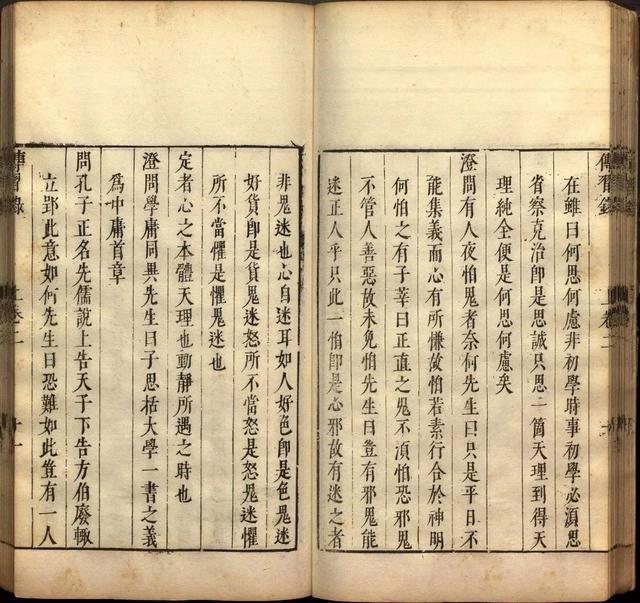 傳習錄
上卷二
十
在雖曰何思何慮非初學時事初學必湏思
省察克治即是思誠只思一箇天理到得天
理純全便是何思何慮矣
澄問有人夜怕鬼者奈何先生曰只是平日不
能集義而心有所慊故怕若素行合於神明
何怕之有子莘曰正直之鬼不湏怕恐邪鬼
不管人善惡故未免怕先生曰豈有邪鬼能
迷正人乎只此一怕即是心邪故有迷之者
非鬼迷也心自迷耳如人好色即是色鬼迷
好貨即是貨鬼迷怒所不當怒是怒鬼迷懼
所不當懼是懼鬼迷也
定者心之本體天理也動靜所遇之時也
澄問學庸同異先生曰子思括大學一書之義
爲中庸首章
問孔子正名先儒說上告天子下告方伯廢輒
立郢此意如何先生曰恐難如此豈有一人
傳習錄
上卷二
十一